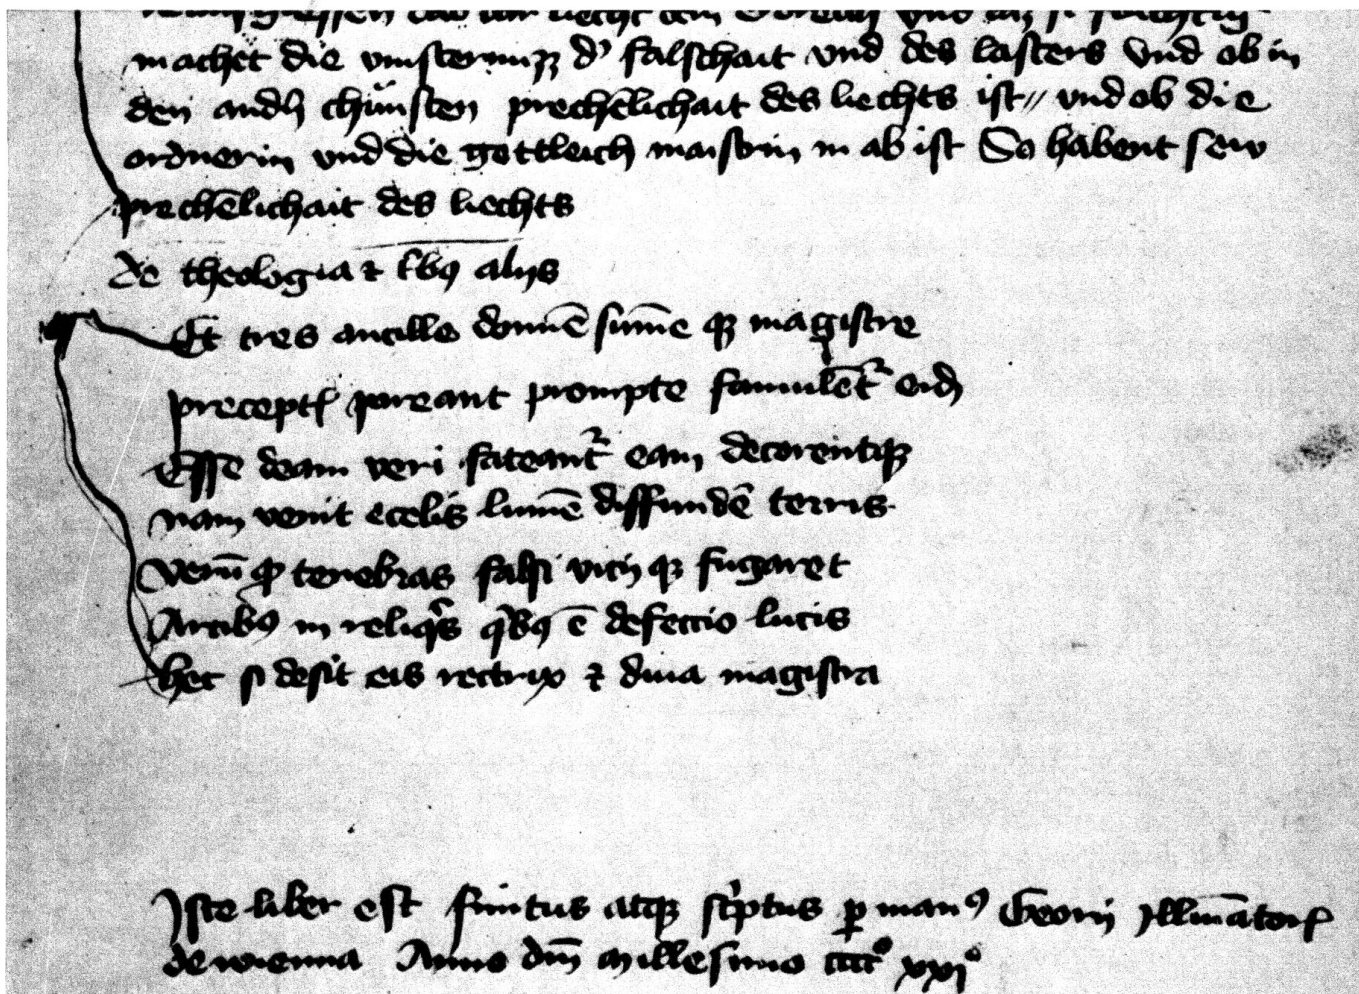 machet die vinsternuzz d' falschait vnd des lasters vnd ob in
den andn chünsten prechēlichait des liechts ist // vnd ob die
ordnerin vnd die gottleich maistrin in ab ist So habent sew
prechēlichait des liechts
De theologia ⁊ tbꝰ alijs
Et tres ancille domiē sum̄e qꝫ magistre
precept pareant prompte famulēt͛ eid
Esse deam veri fateant͛ eam decorentqꝫ
nam venit ecelis lumē diffundē̄ terris
verū ꝙ tenebras falsi vicij qꝫ fugaret
Artibꝰ in reliqͥs qͥbꝰ ē defectio lucis
hec si desit eis rectrix ⁊ diua magistra
Iste liber est finitus atqꝫ scͥptus ꝑ manꝰ Georij Illuīator
de wienna Anno dm̄ Millesimo ccccº xxiº